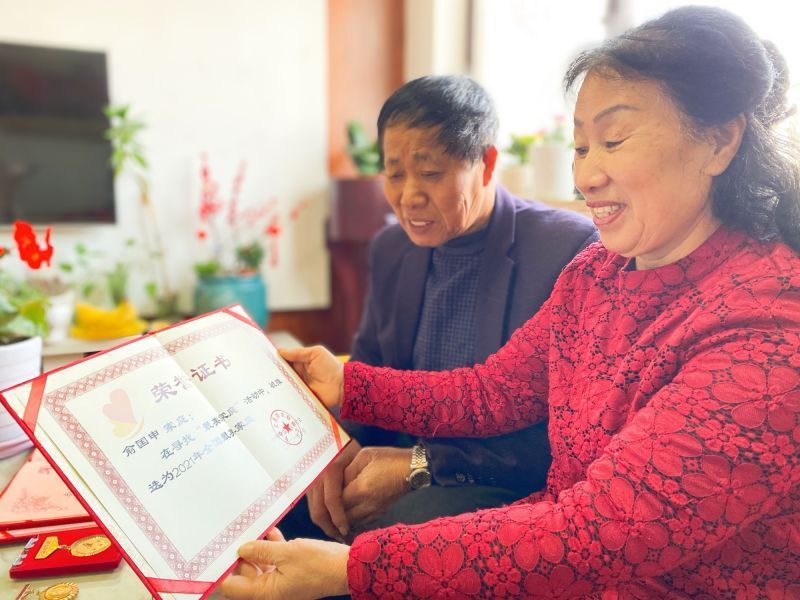 荣誉证书
俞国申 家庭:
在寻找“最美家庭”活动中,被推
选为2021年全国最美家庭